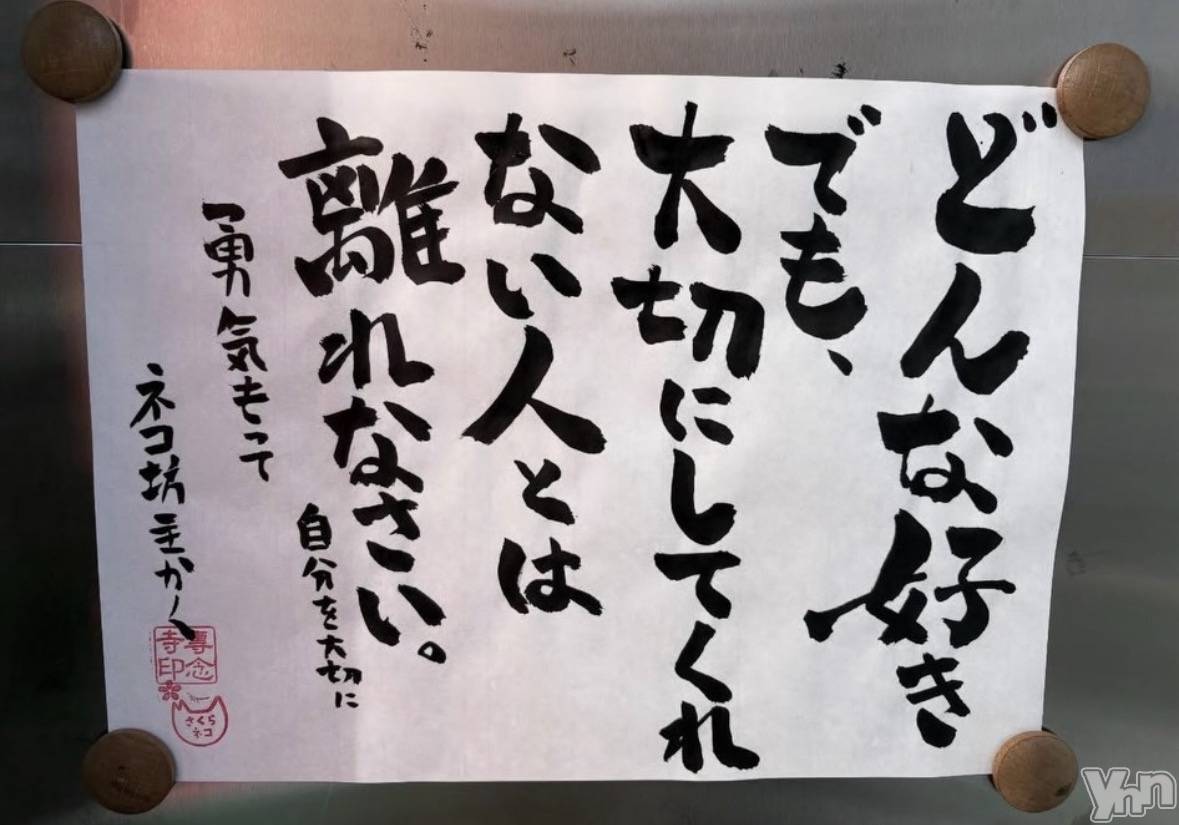 どんな好き
でも、
大切にしてくれ
ない人とは
離れなさい。
自分を大切に
勇気もって
ネコ坊主かく
專念
寺印
さくら
ネコ